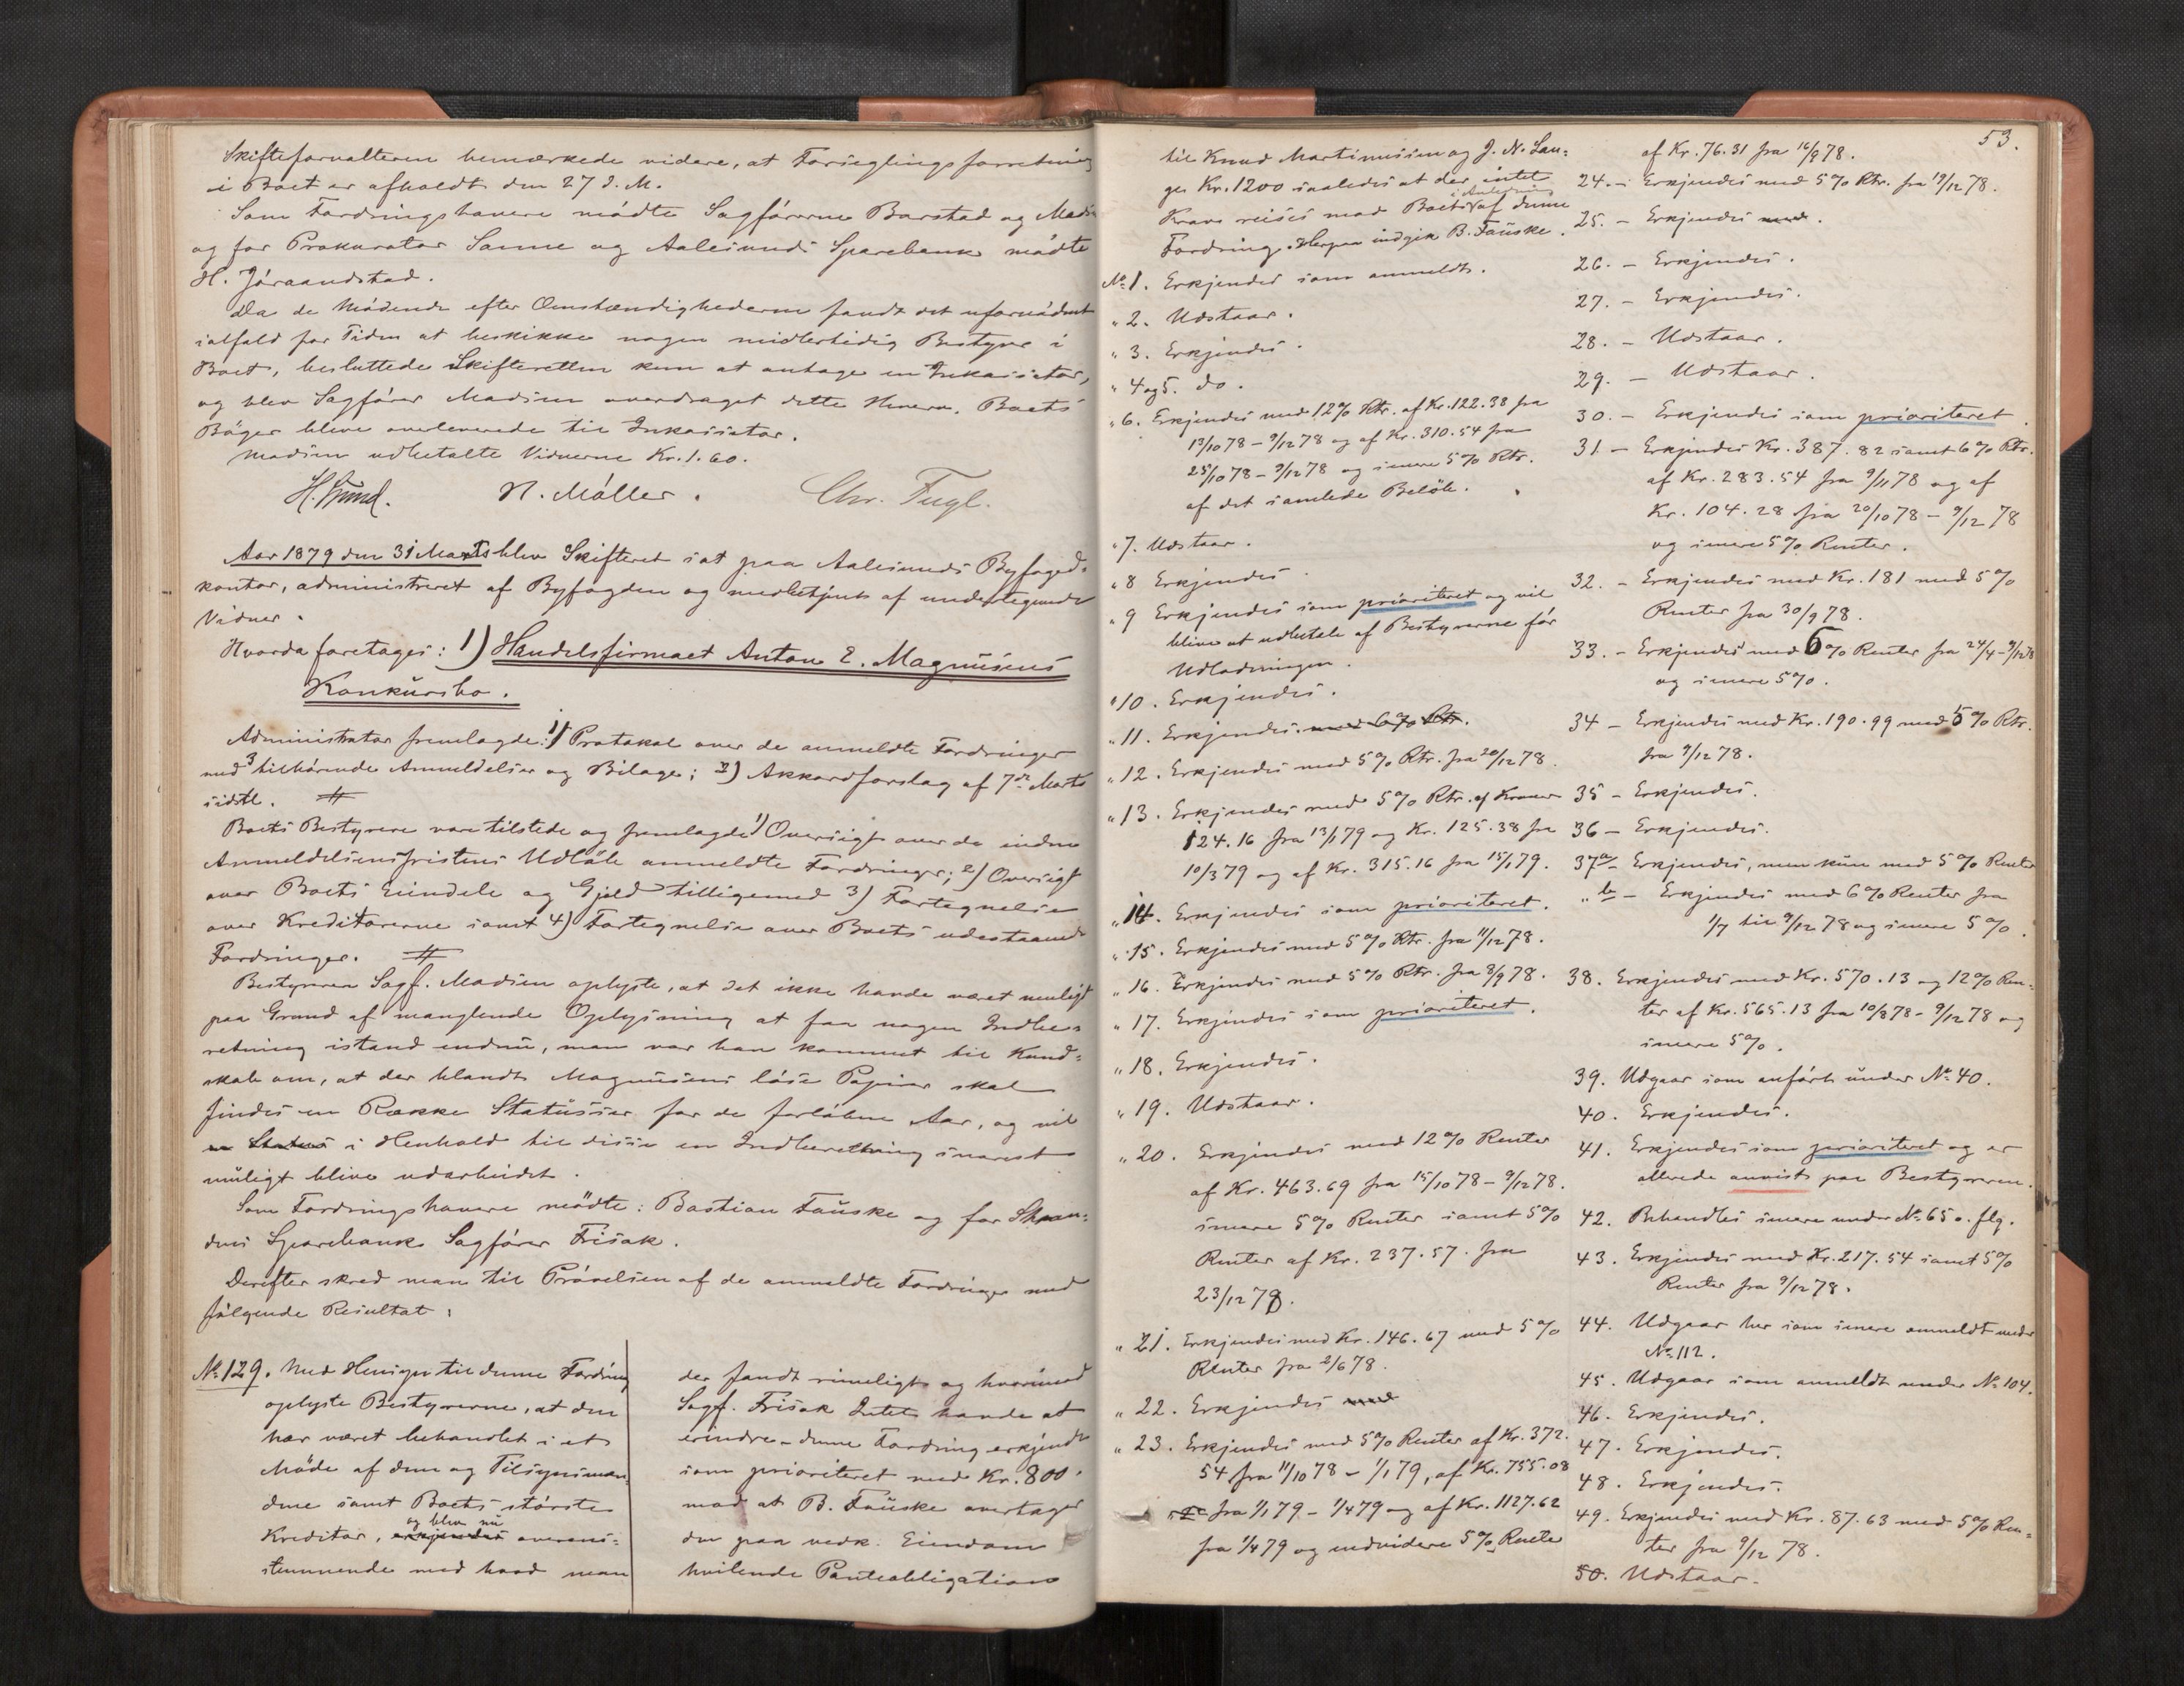 Skifteforvalteren bemærkede videre, at Forseglingsforretning
i Boet er afholdt den 27 d. M.
Som Fordringshavere mødte Sagførerne Barstad og Madsen
og for Prokurator Sanne og Aalesunds Sparebank mødte
H. Jøraandstad.
Da de Mødende efter Omstændighederne fandt det ufornødent
ialfald for Tiden at beskikke nogen midlertidig Bestyrer i
Boet, besluttede Skifteretten kun at antage en Inkassator,
og blev Sagfører Madsen overdraget dette Hverv. Boets
Bøger bleve overleverede til Inkassator.
Madsen udbetalte Vidnerne Kr. 1.60.
H. Grund. N. Møller. Chr. Fugl.
Aar 1879 den 31 Marts blev Skifteret sat paa Aalesunds Byfoged-
kontor, administreret af Byfogden og medbetjent af undertegnede
Vidner.
Hvorda foretages: 1) Handelsfirmaet Anton E. Magnusens
Konkursbo.
Administrator fremlagde: 1) Protokol over de anmeldte Fordringer
med tilhørende Anmeldelser og Bilage; 2) Akkordforslag af 7de Marts
sidstl. #
Boets Bestyrere vare tilstede og fremlagde 1) Oversigt over de inden
Anmeldelsensfristens Udløb anmeldte Fordringer; 2) Oversigt
over Boets Eiendele og Gjæld tilligemed 3) Fortegnelse
over Kreditorerne samt 4) Fortegnelse over Boets udestaaende
Fordringer. #
Bestyreren Sagf. Madsen oplyste, at det ikke havde været muligt
paa Grund af manglende Oplysning at faa nogen Indbe-
retning istand endnu, men var han kommet til Kund-
skab om, at der blandt Magnusens løse Papirer skal
findes en Række Statusser for de forløbne Aar, og vil
en Status i Henhold til disse en Indberetning snarest
muligt blive udarbeidet.
Som Fordringshavere mødte: Bastian Fauske og for Skran-
dens Sparebank Sagfører Frisak.
Derefter skred man til Prøvelsen af de anmeldte Fordringer med
følgende Resultat:
No 129. Med Hensyn til denne Fordring
oplyste Bestyrerne, at den
har været behandlet i et
Møde af dem og Tilsynsmæn-
dene samt Boets største
og blev nu
Kreditor, erkjendes overens-
stemmende med hvad man
der fandt rimeligt og hvorimod
Sagf. Frisak Intet havde at
erindre – denne Fordring erkjendt
som prioriteret med Kr. 800.
mod at B. Fauske overtager
den paa vedk. Eiendom
hvilende Panteobligation
53.
til Knud Martinussen og J. N. Lan-
ge Kr. 1200 saaledes at der intet
i Anledning
Krav reises mod Boets af denne
Fordring. Herpaa indgik B. Fauske.
No 1. Erkjendes som anmeldt.
" 2. Udstaar.
" 3. Erkjendes.
" 4 og 5. do.
" 6. Erkjendes med 12% Rtr. af Kr. 122.38 fra
13/10 78 – 9/12 78 og af Kr. 310.54 fra
25/10 78 – 9/12 78 og senere 5% Rtr.
af det samlede Beløb.
" 7. Udstaar.
" 8 Erkjendes
" 9 Erkjendes som prioriteret og vil
blive at udbetale af Bestyrerne før
Udlodningen.
" 10. Erkjendes.
" 11. Erkjendes med 6% Rtr.
" 12. Erkjendes med 5% Rtr. fra 20/12 78.
" 13. Erkjendes med 5% Rtr. af Kroner
124.16 fra 13/1 79 og Kr. 125.38 fra
10/3 79 og af Kr. 315.16 fra 15/1 79.
" 14. Erkjendes som prioriteret.
" 15. Erkjendes med 5% Rtr. fra 11/12 78.
" 16. Erkjendes med 5% Rtr. fra 8/9 78.
" 17. Erkjendes som prioriteret.
" 18. Erkjendes.
" 19. Udstaar.
" 20. Erkjendes med 12% Renter
af Kr. 463.69 fra 15/10 78 – 9/12 78.
senere 5% Renter samt 5%
Renter af Kr. 237.57. fra
23/12 78.
" 21. Erkjendes med Kr. 146.67 med 5%
Renter fra 2/6 78.
" 22. Erkjendes med
" 23. Erkjendes med 5% Renter af Kr. 372.
54 fra 11/10 78 – 1/1 79, af Kr. 755.08
fra 1/1 79 – 1/4 79 og af Kr. 1127.62
fra 1/4 79 og endvidere 5% Renter
af Kr. 76.31 fra 16/9 78.
24. – Erkjendes med 5% Rtr. fra 19/12 78.
25. – Erkjendes med.
26. – Erkjendes.
27. – Erkjendes.
28. – Udstaar.
29. – Udstaar.
30. – Erkjendes som prioriteret.
31 – Erkjendes Kr. 387.82 samt 6% Rtr.
af Kr. 283.54 fra 9/11 78 og af
Kr. 104.28 fra 20/10 78 – 9/12 78
og senere 5% Renter.
32. – Erkjendes med Kr. 181 med 5%
Renter fra 30/9 78.
33. – Erkjendes med 6% Renter fra 24/4 – 9/12 78
og senere 5%.
34 – Erkjendes med Kr. 190.99 med 5% Rtr.
fra 9/12 78.
35 – Erkjendes.
36 – Erkjendes.
37 a – Erkjendes, men kun med 5% Renter
" b – Erkjendes med 6% Renter fra
1/7 til 9/12 78 og senere 5%.
38. Erkjendes med Kr. 570.13 og 12% Ren-
ter af Kr. 565.13 fra 10/8 78 – 9/12 78 og
senere 5%.
39. Udgaar som anført under No 40.
40. Erkjendes.
41. Erkjendes som prioriteret og er
allerede anvist paa Bestyreren.
42. Behandles senere under No 65 o. flg.
43. Erkjendes med Kr. 217.54 samt 5%
Renter fra 9/12 78.
44. Udgaar her som senere anmeldt under
No 112.
45. Udgaar som anmeldt under No 104.
46. Erkjendes.
47. Erkjendes.
48. Erkjendes.
49. Erkjendes med Kr. 87.63 med 5% Ren-
ter fra 9/12 78.
50. Udstaar.